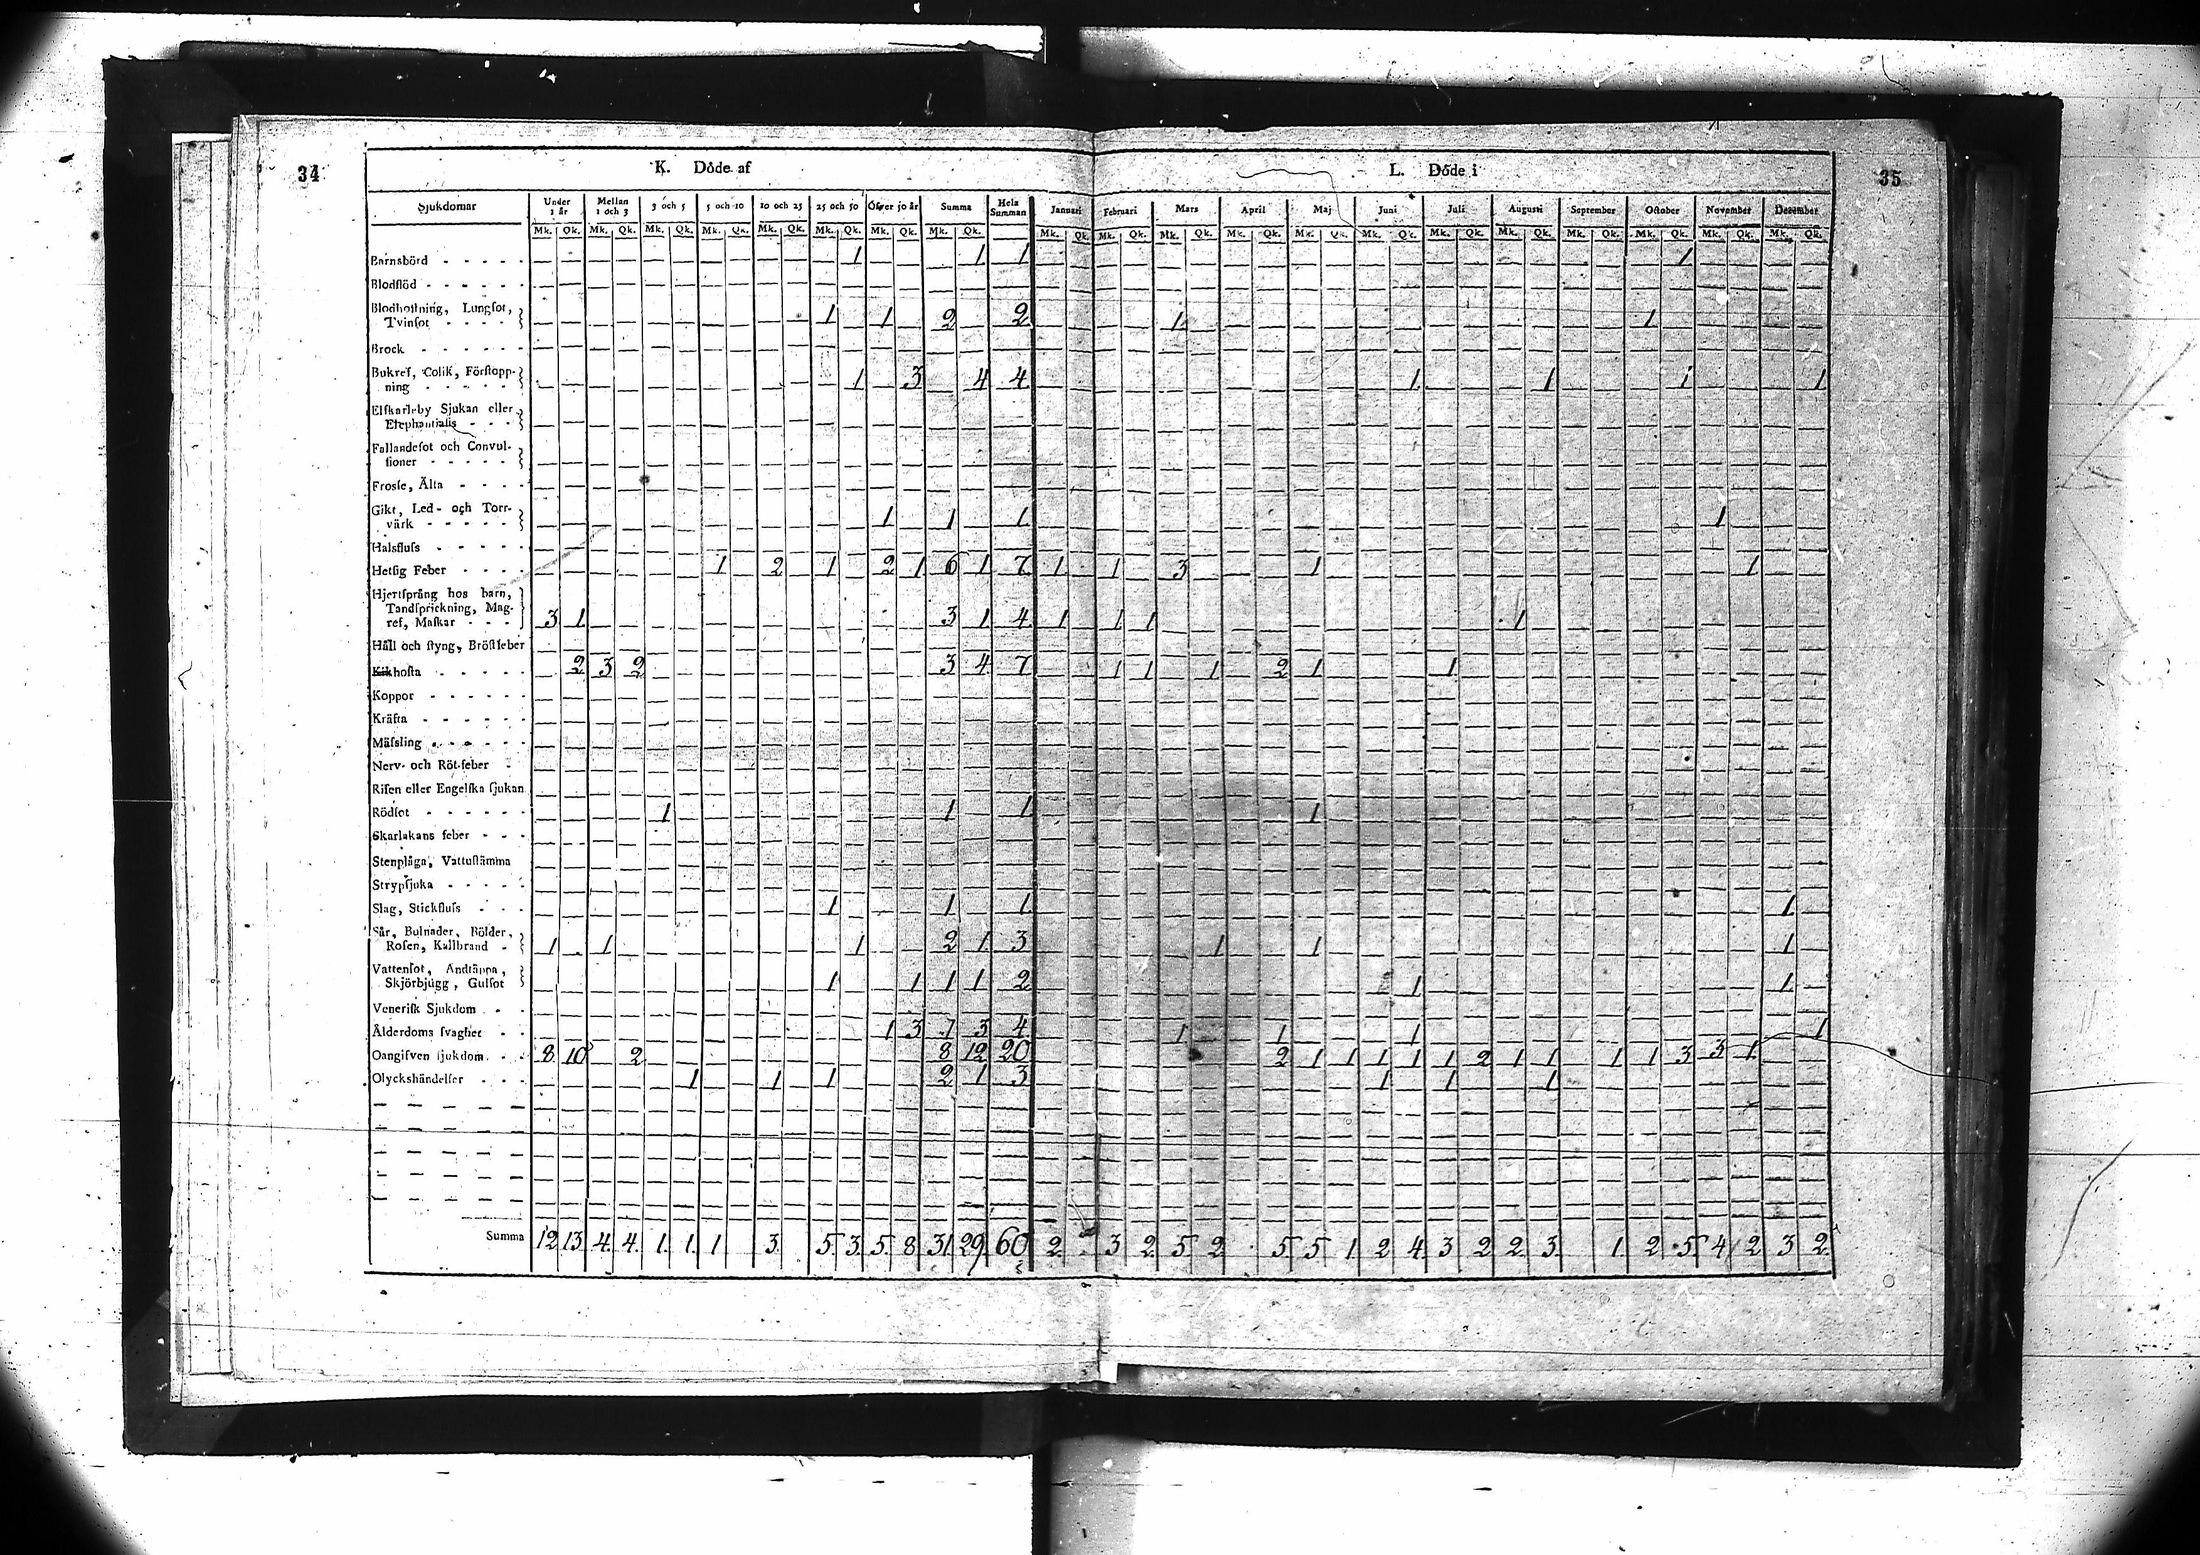 34
K. Döde af
L. Döde i
35
Sjukdomar Under 1 år Mellan 1 och 3 3 och 5 5 och 10 10 och 25 25 och 50 Öfver 50 år Summa Hela Summan Januari Februari Mars April Maj Juni Juli Augusti September October November December
Mk. Qk. Mk. Qk. Mk. Qk. Mk. Qk. Mk. Qk. Mk. Qk. Mk. Qk. Mk. Qk. Mk. Qk. Mk. Qk. Mk. Qk. Mk. Qk. Mk. Qk. Mk. Qk. Mk. Qk. Mk. Qk. Mk. Qk. Mk. Qk. Mk. Qk. Mk. Qk.
Barnsbörd 1 1 1 1
Blodflöd
Blodhostning, Lungſot,
Tvinſot 1 1 2 2 1 1
Brock
Bukref, Colik, Förſtopp-
ning 1 3 4 4 1 1 1 1
Elſkarleby Sjukan eller
Elephantiaſis
Fallandeſot och Convul-
ſioner
Froſſe, Älta
Gikt, Led- och Torr-
värk 1 1 1 1
Halsfluſs
Hetſig Feber 1 2 1 2 1 6 1 7 1 1 3 1 1
Hjertſprång hos barn,
Tandſprickning, Mag-
ref, Maſkar 3 1 3 1 4 1 1 1 1
Håll och ſtyng, Bröſtfeber
Kikhoſta 2 3 2 3 4 7 1 1 1 2 1 1
Koppor
Kräfta
Mäſsling
Nerv- och Röt-feber
Riſen eller Engelſka ſjukan
Rödſot 1 1 1 1
Skarlakans feber
Stenplåga, Vattuſtämma
Strypſjuka
Slag, Stickfluſs 1 1 1 1
Sår, Bulnader, Bölder,
Roſen, Kallbrand 1 1 1 2 1 3 1 1 1
Vattenſot, Andtäppa,
Skjörbjugg, Gulſot 1 1 1 1 2 1 1
Veneriſk Sjukdom
Ålderdoms ſvaghet 1 3 1 3 4 1 1 1 1
Oangifven ſjukdom 8 10 2 8 12 20 2 1 1 1 1 1 2 1 1 1 1 3 3 1
Olyckshändelſer 1 1 1 2 1 3 1 1 1
Summa 12 13 4 4 1 1 1 3 5 3 5 8 31 29 60 2 3 2 5 2 5 5 1 2 4 3 2 2 3 1 2 5 4 2 3 2